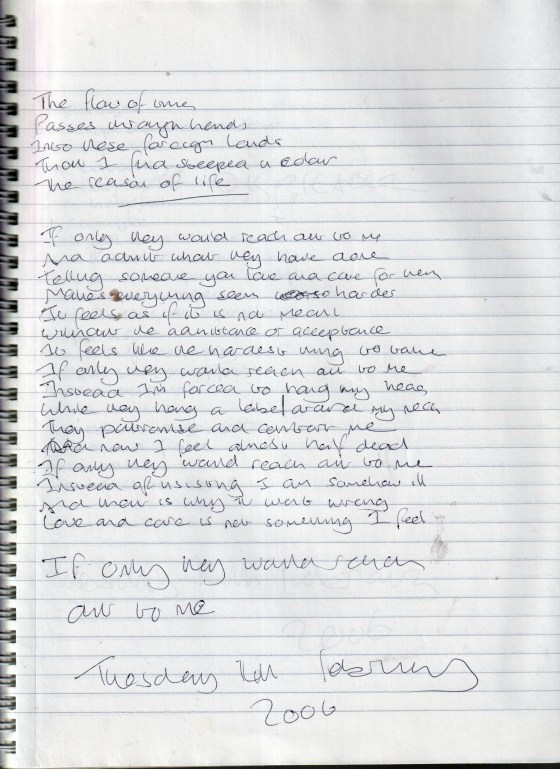 The flow of time
Passes through hands
Into these foreign lands
Then I find steeped in colour
The reason of life
If only they would reach out to me
And admit what they have done
Telling someone you love and care for them
Makes everything seem harder
It feels as if it is not meant
Without the admittance or acceptance
It feels like the hardest thing to
If only they would reach out to me
Instead I'm forced to hang my head
While they hang a label around my neck
They patronise and comfort me
And now I feel almost half dead
If only they would reach out to me
Instead of insisting I am somehow ill
And that is why it went wrong
Love and care is not something I feel
If only they would reach
out to me
Tuesday February
2006